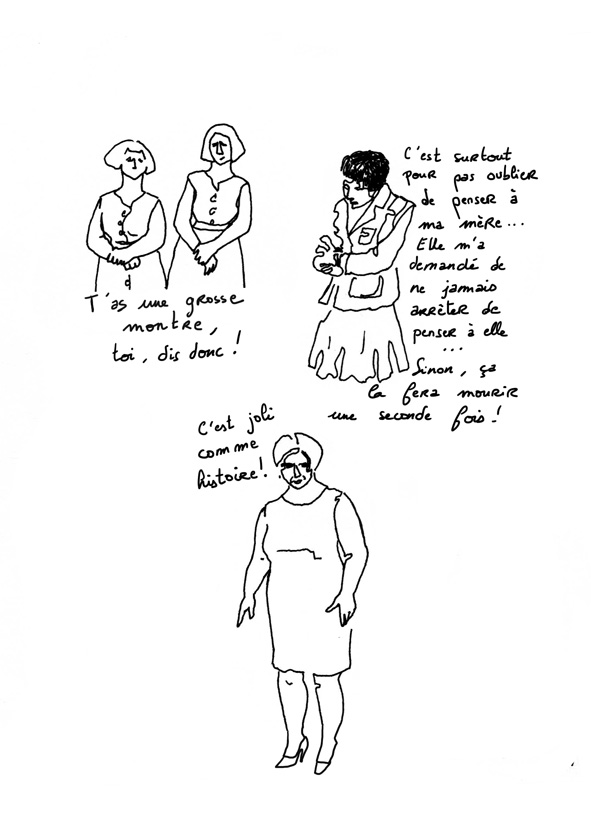 T'as une grosse
montre,
toi, dis donc !
C'est surtout
pour pas oublier
de penser à
ma mère...
Elle m'a
demandé de
ne jamais
arrêter de
penser à elle
...
Sinon, ça
la fera mourir
une seconde fois !
C'est joli
comme
histoire !